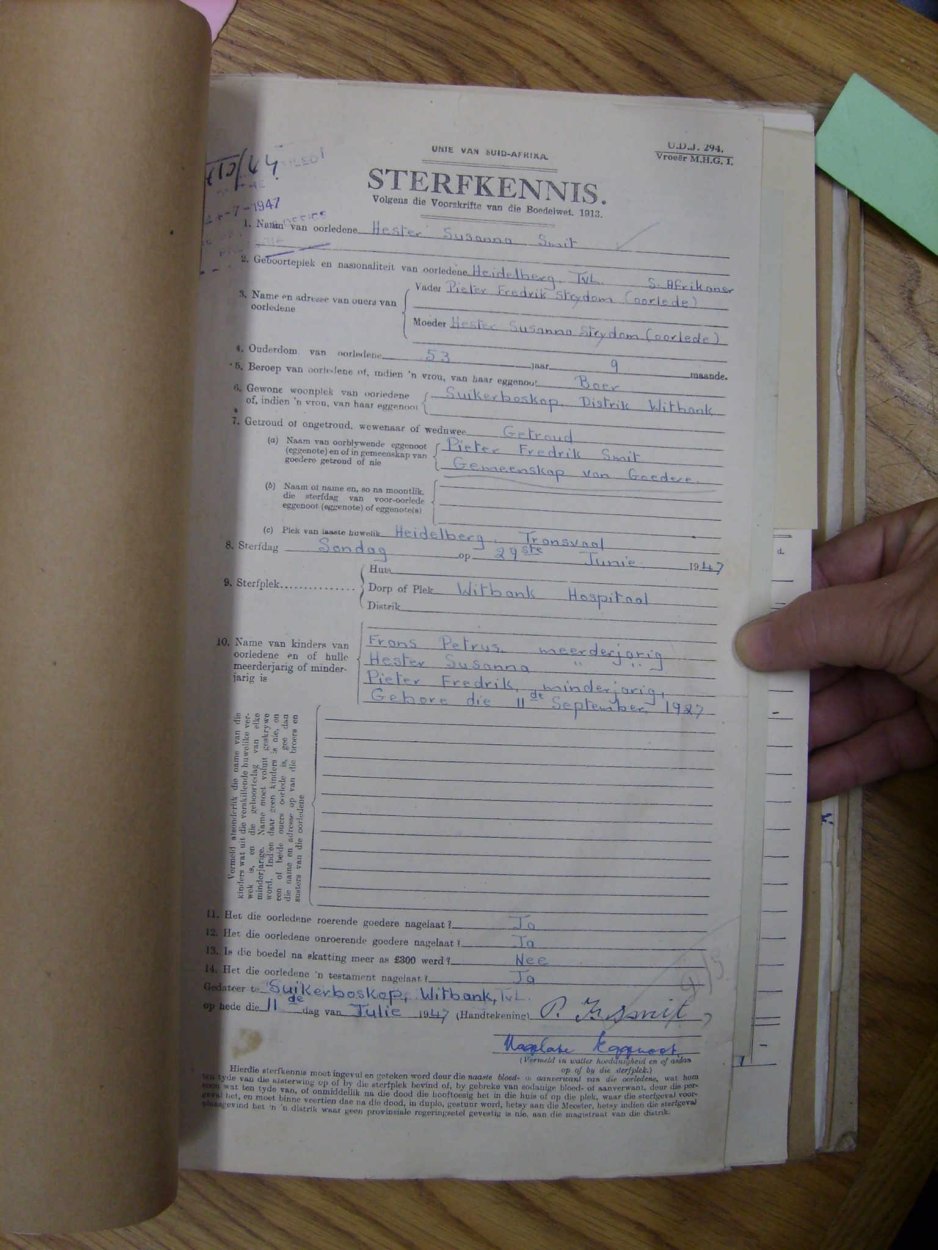 UNIE VAN SUID-AFRIKA.
U.D.J. 294.
Vroeër M.H.G. 1.
STERFKENNIS.
Volgens die Voorskrifte van die Boedelwet, 1913.
-7-1947
1. Naam van oorledene Hester Susanna Smit
2. Geboorteplek en nasionaliteit van oorledene Heidelberg Tvl. S. Afrikaner
3. Name en adresse van ouers van oorledene
Vader Pieter Fredrik Strydom (oorlede)
Moeder Hester Susanna Strydom (oorlede)
4. Ouderdom van oorledene 53 jaar 9 maande.
5. Beroep van oorledene of, indien 'n vrou, van haar eggenoot Boer
6. Gewone woonplek van oorledene
of, indien 'n vrou, van haar eggenoot
Suikerboskop Distrik Witbank
7. Getroud of ongetroud, wewenaar of weduwee Getroud
(a) Naam van oorblywende eggenoot
(eggenote) en of in gemeenskap van
goedere getroud of nie
Pieter Fredrik Smit
Gemeenskap van Goedere
(b) Naam of name en, so na moontlik,
die sterfdag van voor-oorlede
eggenoot (eggenote) of eggenote(s)
(c) Plek van laaste huwelik Heidelberg Transvaal
8. Sterfdag Sondag op 29ste Junie 1947
9. Sterfplek
Huis
Dorp of Plek Witbank Hospitaal
Distrik
10. Name van kinders van
oorledene en of hulle
meerderjarig of minder-
jarig is
Frans Petrus meerderjarig
Hester Susanna " "
Pieter Fredrik, minderjarig,
Gebore die 11de September, 1927
Vermeld afsonderlik die name van die
kinders wat uit die verskillende huwelike ver-
wek is, en die geboortedag van elke
minderjarige. Name moet voluit geskrywe
word. Indien daar geen kinders is nie, en
een of beide ouers oorlede is, gee dan
die name en adresse op van die broers en
susters van die oorledene
11. Het die oorledene roerende goedere nagelaat? Ja
12. Het die oorledene onroerende goedere nagelaat? Ja
13. Is die boedel na skatting meer as £300 werd? Nee
14. Het die oorledene 'n testament nagelaat? Ja
Gedateer te Suikerboskop, Witbank, Tvl.
op hede die 11de dag van Julie 1947 (Handtekening) P. F. Smit
Nagelate Eggenoot
(Vermeld in watter hoedanigheid en of aldan
op of by die sterfplek.)
Hierdie sterfkennis moet ingevul en geteken word deur die naaste bloed- of aanverwant van die oorledene, wat hom
ten tyde van die afsterwing op of by die sterfplek bevind of, by gebreke van sodanige bloed- of aanverwant, deur die per-
soon wat ten tyde van, of onmiddelik na die dood die hooftoesig het in die huis of op die plek, waar die sterfgeval voor-
geval het, en moet binne veertien dae na die dood, in duplo, gestuur word, hetsy aan die Meester, hetsy indien die sterfgeval
plaasgevind het in 'n distrik waar geen provinsiale regeringsetel gevestig is nie, aan die magistraat van die distrik.